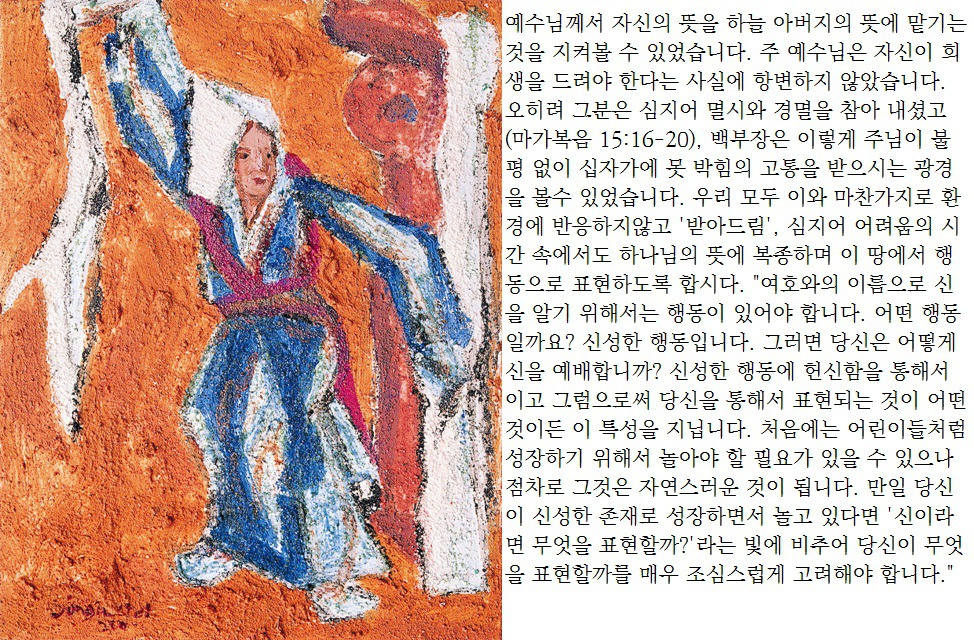 예수님께서 자신의 뜻을 하늘 아버지의 뜻에 맡기는
것을 지켜볼 수 있었습니다. 주 예수님은 자신이 희
생을 드려야 한다는 사실에 항변하지 않았습니다.
오히려 그분은 심지어 멸시와 경멸을 참아 내셨고
(마가복음 15:16-20), 백부장은 이렇게 주님이 불
평 없이 십자가에 못 박힘의 고통을 받으시는 광경
을 볼수 있었습니다. 우리 모두 이와 마찬가지로 환
경에 반응하지않고 '받아드림', 심지어 어려움의 시
간 속에서도 하나님의 뜻에 복종하며 이 땅에서 행
동으로 표현하도록 합시다. "여호와의 이름으로 신
을 알기 위해서는 행동이 있어야 합니다. 어떤 행동
일까요? 신성한 행동입니다. 그러면 당신은 어떻게
신을 예배합니까? 신성한 행동에 헌신함을 통해서
이고 그럼으로써 당신을 통해서 표현되는 것이 어떤
것이든 이 특성을 지닙니다. 처음에는 어린이들처럼
성장하기 위해서 놀아야 할 필요가 있을 수 있으나
점차로 그것은 자연스러운 것이 됩니다. 만일 당신
이 신성한 존재로 성장하면서 놀고 있다면 '신이라
면 무엇을 표현할까?'라는 빛에 비추어 당신이 무엇
을 표현할까를 매우 조심스럽게 고려해야 합니다."